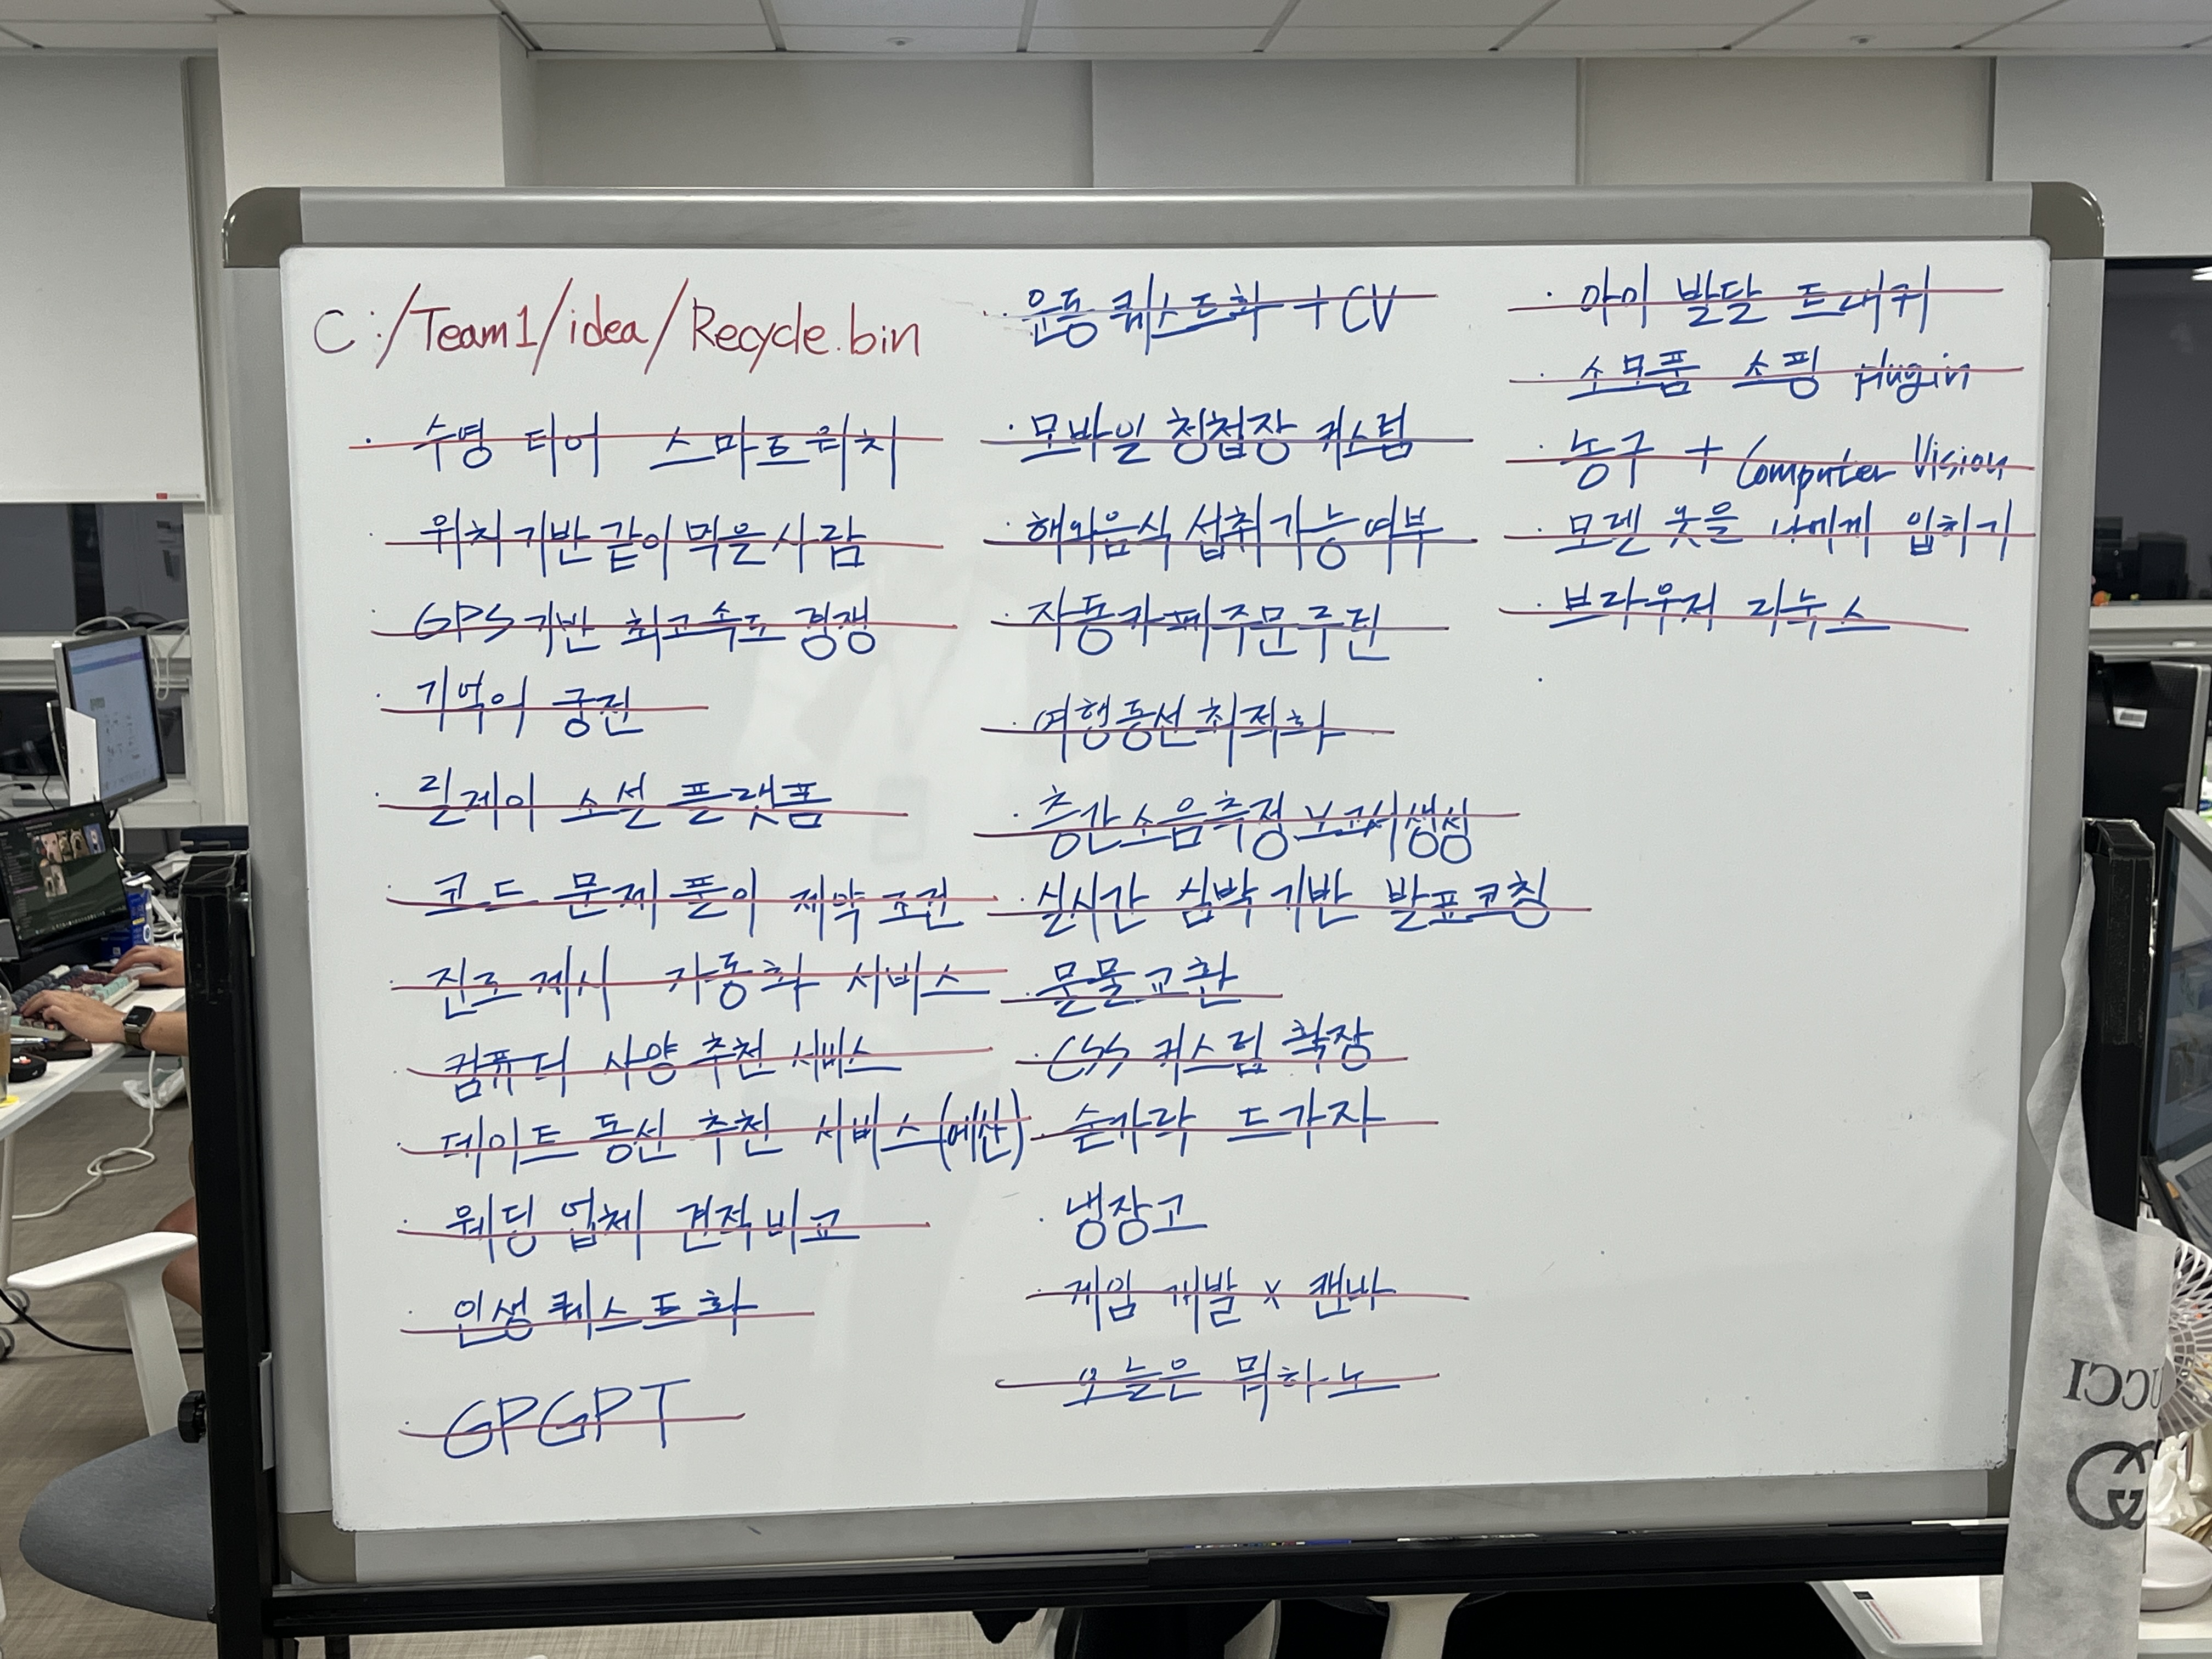 C:/Team1/idea/Recycle.bin
· 수영 티어 스마트워치
· 위치기반 같이 먹을 사람
· GPS기반 최고속도 경쟁
· 기억의 궁전
· 릴레이 소설 플랫폼
· 코드 문제 풀이 제약 조건
· 진로 제시 자동화 서비스
· 컴퓨터 사양 추천 서비스
· 데이트 동선 추천 서비스(예산)
· 웨딩 업체 견적비교
· 인생 퀘스트화
· GPGPT
· 운동 퀘스트화 + CV
· 모바일 청첩장 커스텀
· 해외음식 섭취가능여부
· 자동카페주문루틴
· 여행동선최적화
· 층간소음측정 보고서생성
· 실시간 심박 기반 발표코칭
· 물물교환
· CSS 커스텀 확장
· 숟가락 드가자
· 냉장고
· 게임 개발 x 캔바
· 오늘은 뭐하노
· 아이 발달 트래커
· 소모품 쇼핑 plugin
· 농구 + Computer Vision
· 모델 옷을 나에게 입히기
· 브라우저 리눅스
·
UCCI